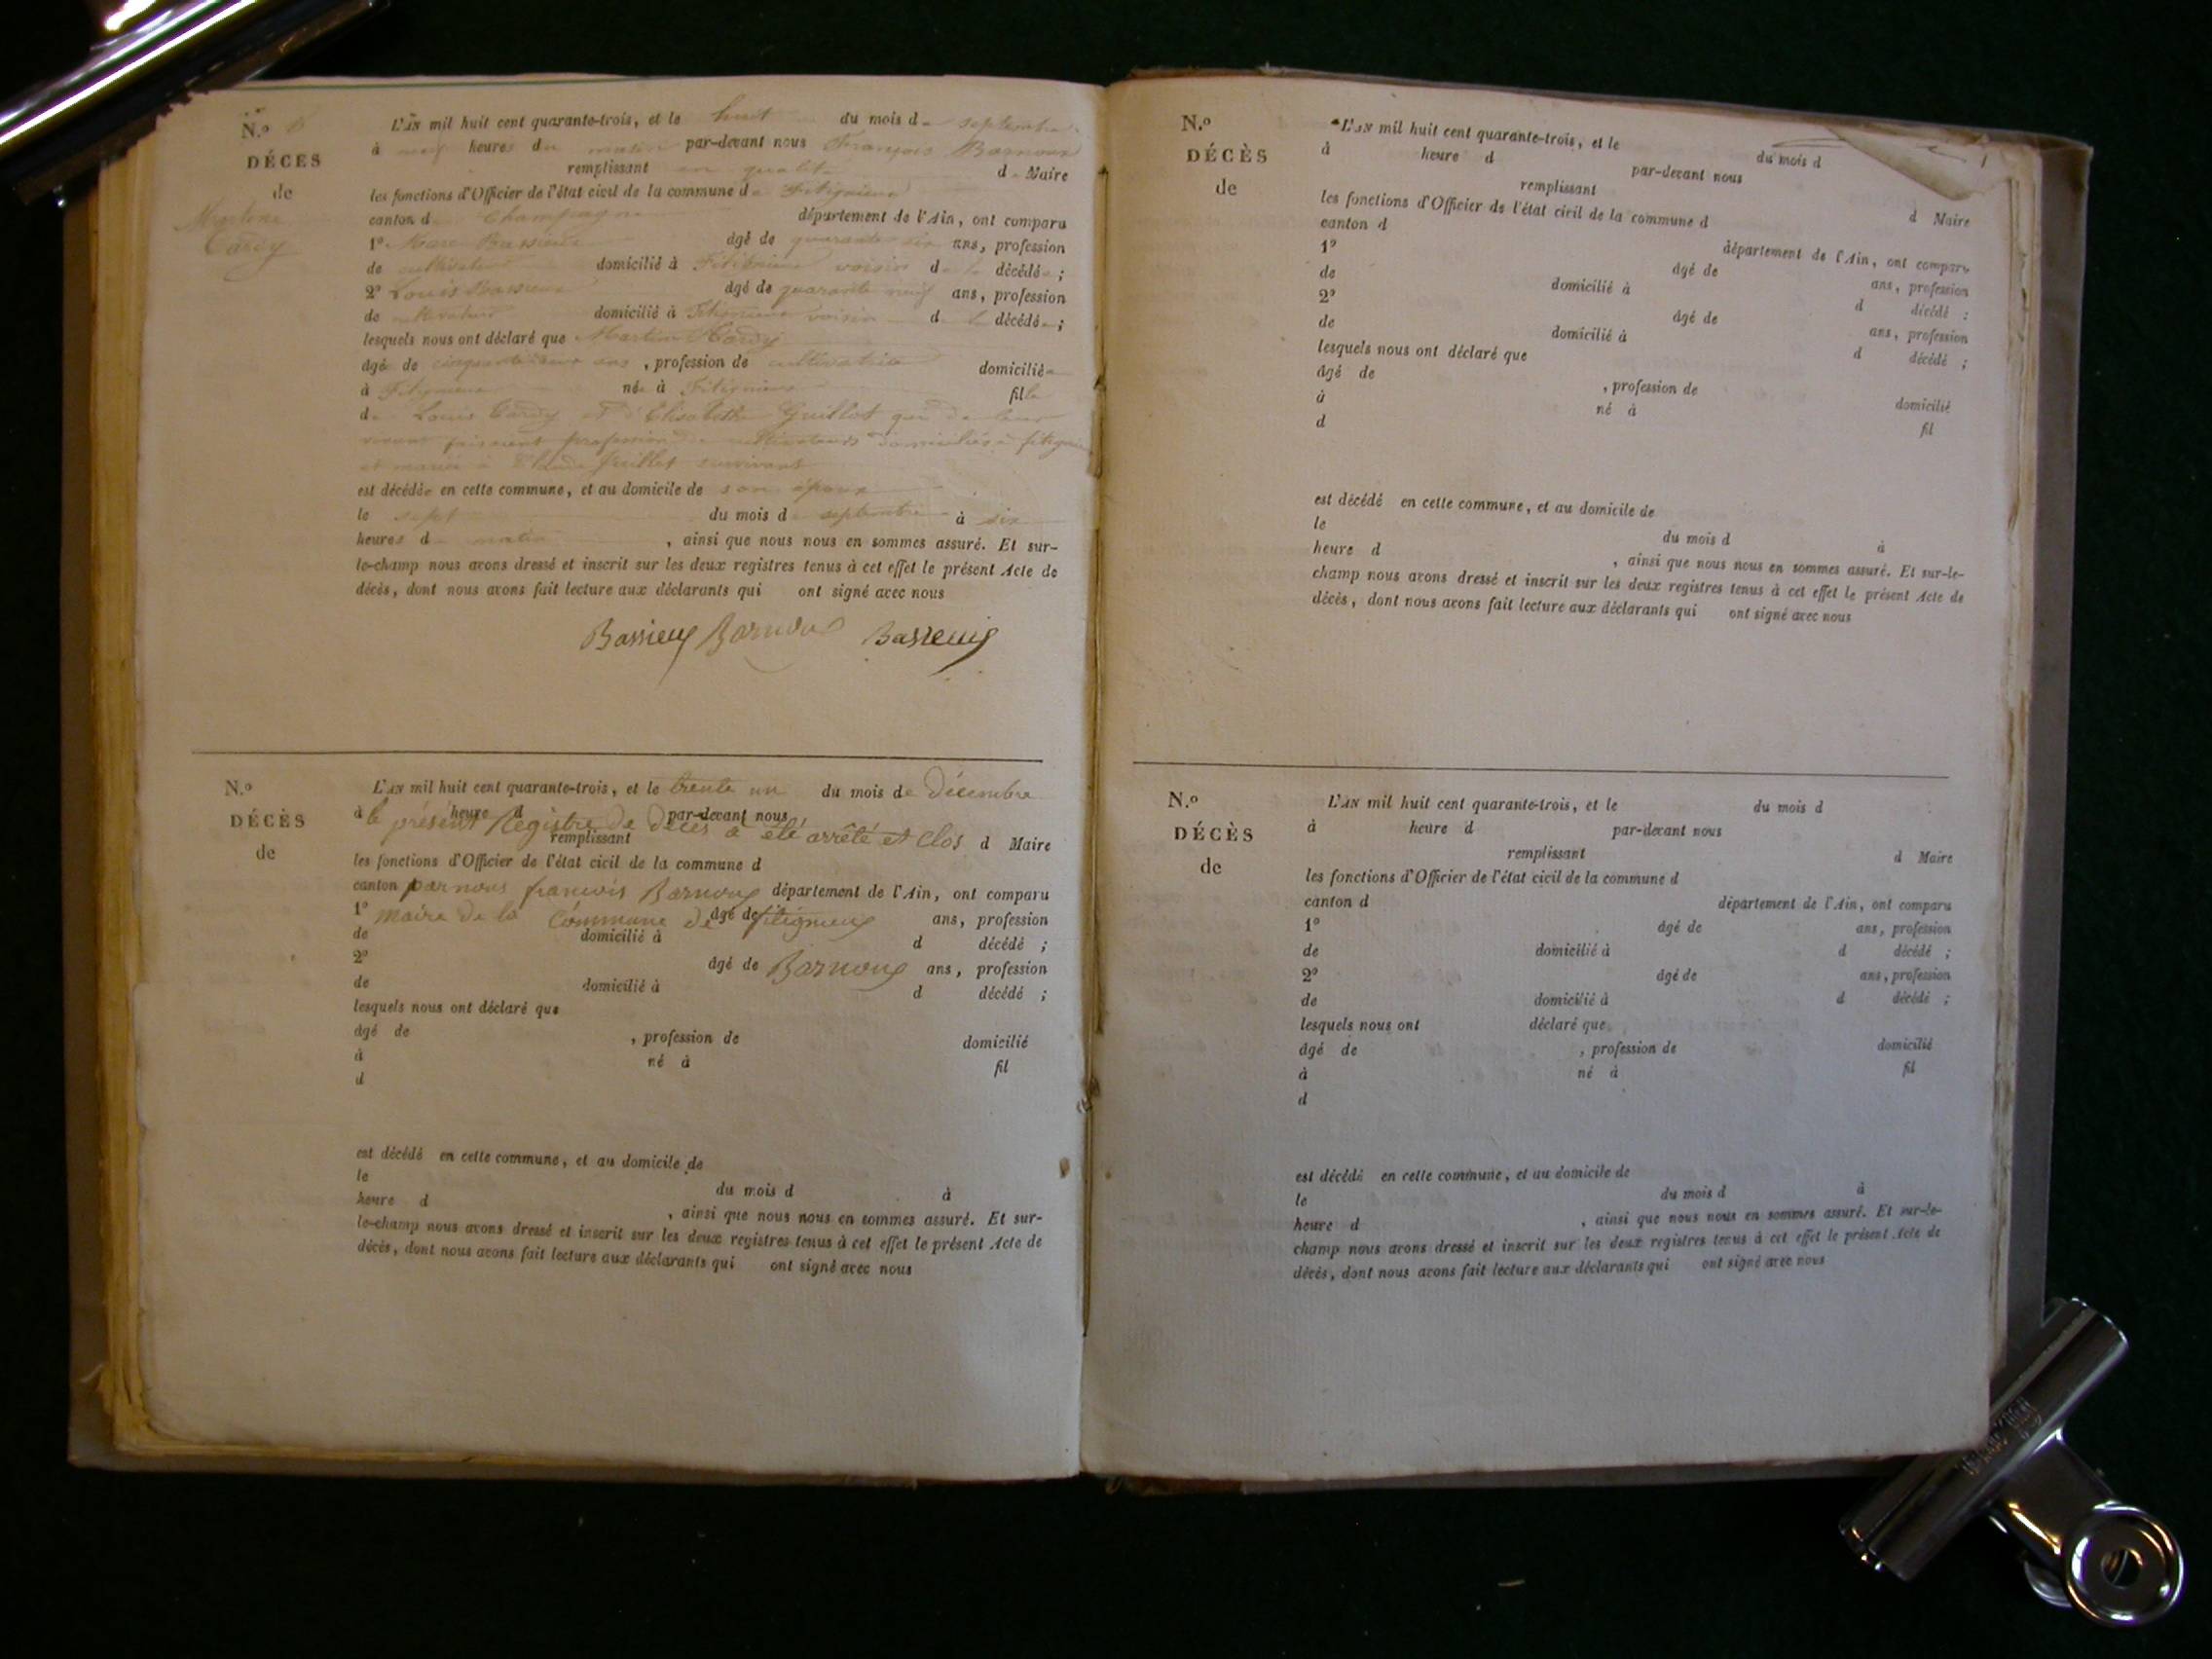 N.º
DÉCES
de
Martine
Cardy
L'AN mil huit cent quarante-trois, et le huit du mois de septembre
à neuf heures du matin par-devant nous François Barnoux
remplissant en qualité de Maire
les fonctions d'Officier de l'état civil de la commune de Fitignieu
canton de Champagne département de l'Ain, ont comparu
1º Marc Bassieux âgé de quarante six ans, profession
de cultivateur domicilié à Fitignieu voisin de la décédée ;
2º Louis Bassieux âgé de quarante neuf ans, profession
de cultivateur domicilié à Fitignieu voisin de la décédée ;
lesquels nous ont déclaré que Martine Cardy
âgée de cinquante ans, profession de cultivatrice domiciliée
à Fitignieu née à Fitignieu fille
de Louis Cardy et d'Elisabeth Guillot qui de leur
vivant faisaient profession de cultivateurs domiciliés à fitignieu
et mariée à Claude Juillet survivant
est décédée en cette commune, et au domicile de son époux
le sept du mois de septembre à six
heures d matin, ainsi que nous nous en sommes assuré. Et sur-
le-champ nous avons dressé et inscrit sur les deux registres tenus à cet effet le présent Acte de
décès, dont nous avons fait lecture aux déclarants qui ont signé avec nous
Bassieux Barnoux Bassieux
N.º
DÉCÈS
de
L'AN mil huit cent quarante-trois, et le trente un du mois de décembre
à heure d par-devant nous
le présent Registre de décès a été arrêté et Clos
remplissant d Maire
les fonctions d'Officier de l'état civil de la commune d
canton par nous francois Barnoux département de l'Ain, ont comparu
1º maire de la Commune de fitignieux âgé de ans, profession
de domicilié à d décédé ;
2º âgé de Barnoux ans, profession
de domicilié à d décédé ;
lesquels nous ont déclaré que
âgé de , profession de domicilié
à né à fil
d
est décédé en cette commune, et au domicile de
le du mois d à
heure d , ainsi que nous nous en sommes assuré. Et sur-
le-champ nous avons dressé et inscrit sur les deux registres tenus à cet effet le présent Acte de
décès, dont nous avons fait lecture aux déclarants qui ont signé avec nous
N.º
DÉCÈS
de
L'AN mil huit cent quarante-trois, et le du mois d
à heure d par-devant nous
remplissant d Maire
les fonctions d'Officier de l'état civil de la commune d
canton d département de l'Ain, ont comparu
1º âgé de ans, profession
de domicilié à d décédé ;
2º âgé de ans, profession
de domicilié à d décédé ;
lesquels nous ont déclaré que
âgé de , profession de domicilié
à né à fil
d
est décédé en cette commune, et au domicile de
le du mois d à
heure d , ainsi que nous nous en sommes assuré. Et sur-le-
champ nous avons dressé et inscrit sur les deux registres tenus à cet effet le présent Acte de
décès, dont nous avons fait lecture aux déclarants qui ont signé avec nous
N.º
DÉCÈS
de
L'AN mil huit cent quarante-trois, et le du mois d
à heure d par-devant nous
remplissant d Maire
les fonctions d'Officier de l'état civil de la commune d
canton d département de l'Ain, ont comparu
1º âgé de ans, profession
de domicilié à d décédé ;
2º âgé de ans, profession
de domicilié à d décédé ;
lesquels nous ont déclaré que
âgé de , profession de domicilié
à né à fil
d
est décédé en cette commune, et au domicile de
le du mois d à
heure d , ainsi que nous nous en sommes assuré. Et sur-le-
champ nous avons dressé et inscrit sur les deux registres tenus à cet effet le présent Acte de
décès, dont nous avons fait lecture aux déclarants qui ont signé avec nous